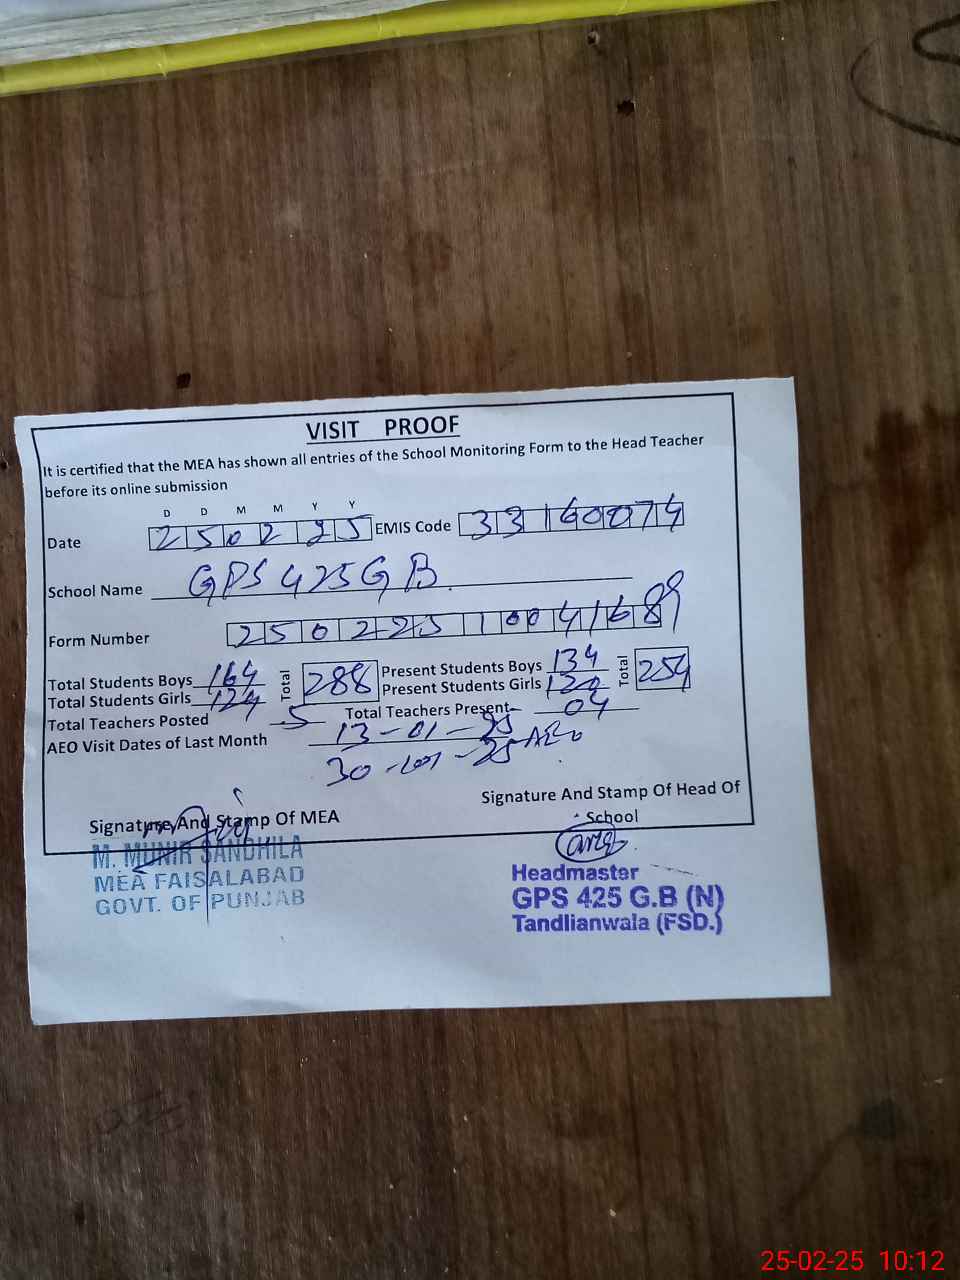 VISIT PROOF
It is certified that the MEA has shown all entries of the School Monitoring Form to the Head Teacher
before its online submission
D D M M Y Y
Date 250225 EMIS Code 33160074
School Name GPS 425 GB
Form Number 25022510041689
Total Students Boys 164 Total 288 Present Students Boys 134 Total 254
Total Students Girls 124 Present Students Girls 120
Total Teachers Posted 5 Total Teachers Present 04
AEO Visit Dates of Last Month 13-01-25
30-01-25 AEO
Signature And Stamp Of MEA
Signature And Stamp Of Head Of
School
M. MUNIR SANDHILA
MEA FAISALABAD
GOVT. OF PUNJAB
Headmaster
GPS 425 G.B (N)
Tandlianwala (FSD.)
25-02-25 10:12